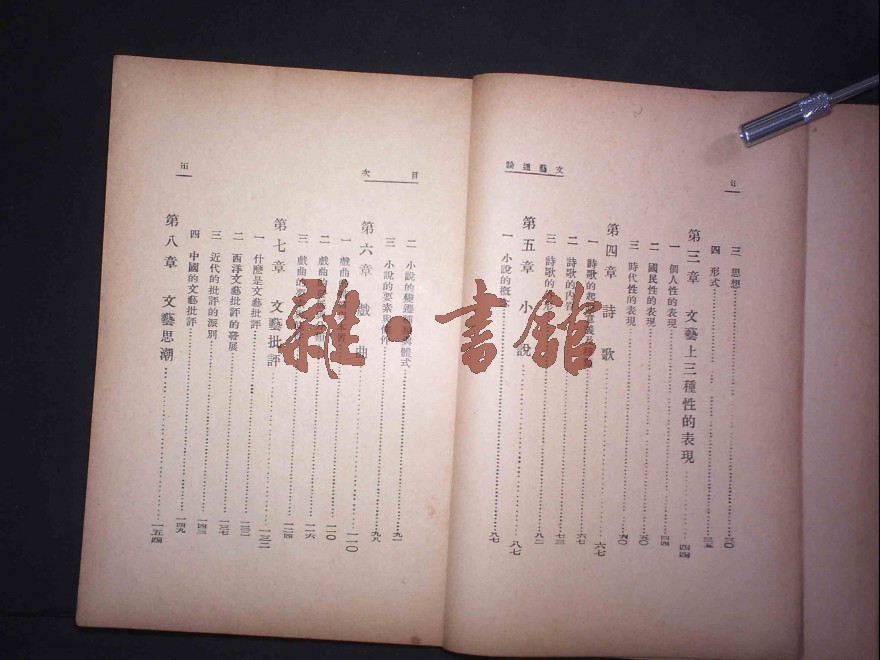 文藝通論
ii
三 思想 三〇
四 形式 三五
第三章 文藝上三種性的表現 四四
一 個人性的表現 四四
二 國民性的表現 五〇
三 時代性的表現 六〇
第四章 詩歌 六七
一 詩歌的起
二 詩歌的內 六七
三 詩歌的 七三
八二
第五章 小說 八七
一 小說的概 八七
目次
iii
二 小說的變遷 體式 九一
三 小說的要素與條件 九八
第六章 戲曲 一一〇
一 戲曲的 一一〇
二 戲曲的 一一六
三 戲曲的要 一二四
第七章 文藝批評 一三二
一 什麼是文藝批評 一三二
二 西洋文藝批評的發展 一三七
三 近代的批評的派別 一四三
四 中國的文藝批評 一四九
第八章 文藝思潮 一五四
雜·書館